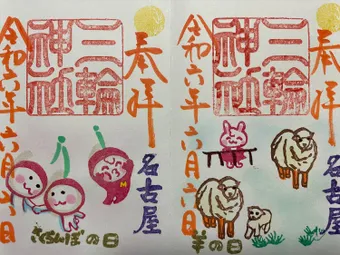 奉拝
三輪神社
令和六年六月
名古屋
さくらんぼの日
奉拝
三輪神社
令和六年六月
名古屋
羊の日